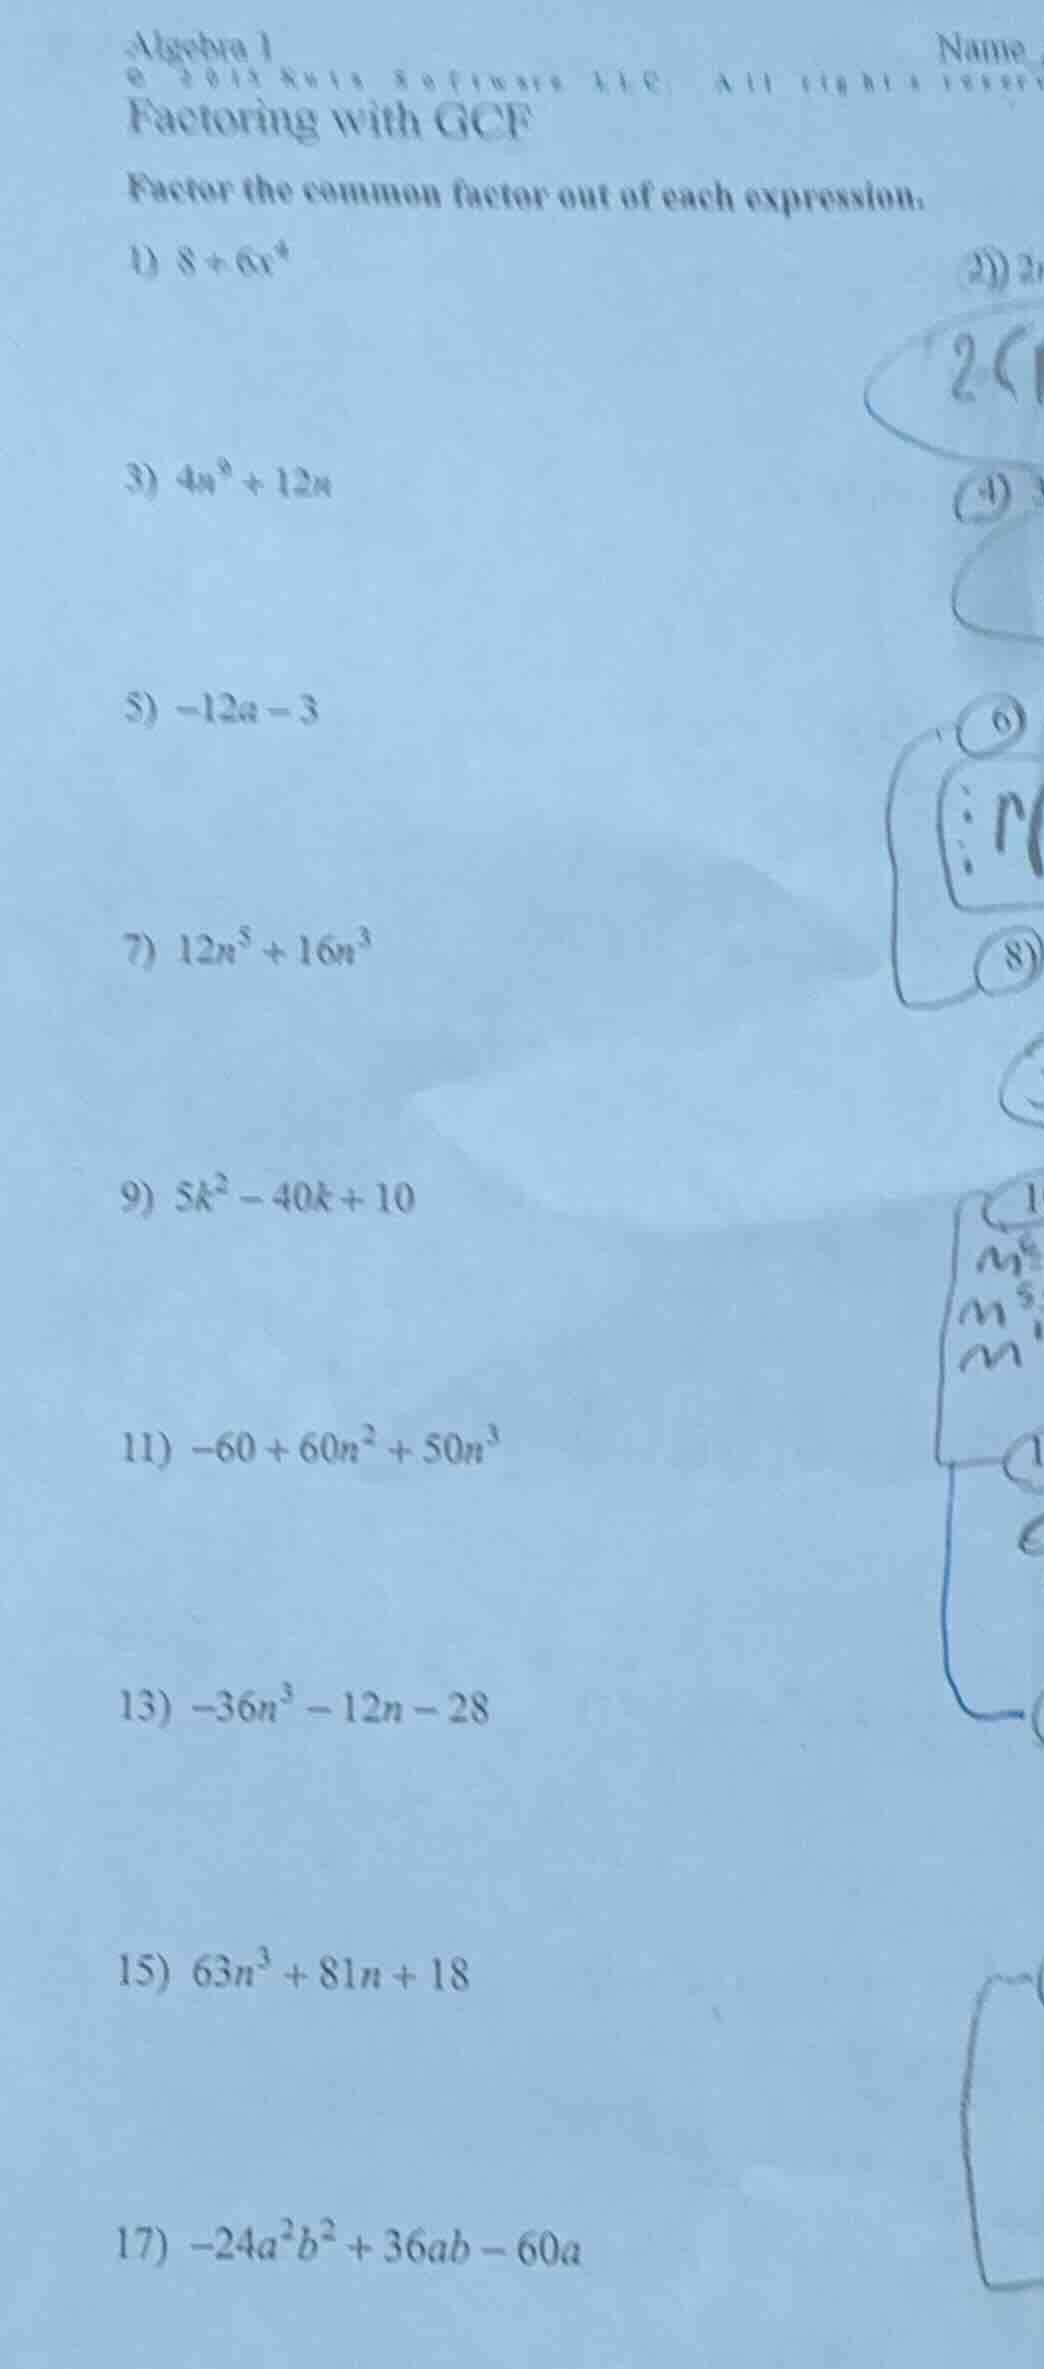 Algebra 1 Name
© 2013 Kuta Software LLC. All rights
Factoring with GCF
Factor the common factor out of each expression.
1) 8 + 6x⁴ 2)
2(
3) 4n⁹ + 12n 4)
5) −12a − 3 6)
7) 12n⁵ + 16n³ 8)
9) 5k² − 40k + 10
m
m⁵
m
11) −60 + 60n² + 50n³
13) −36n³ − 12n − 28
15) 63n³ + 81n + 18
17) −24a²b² + 36ab − 60a